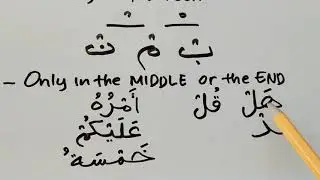 بْ مْ
- Only in the MIDDLE or the END
هَلْ قُلْ أَمْرُهُ
عَلَيْكُمْ
خَمْسَةٌ